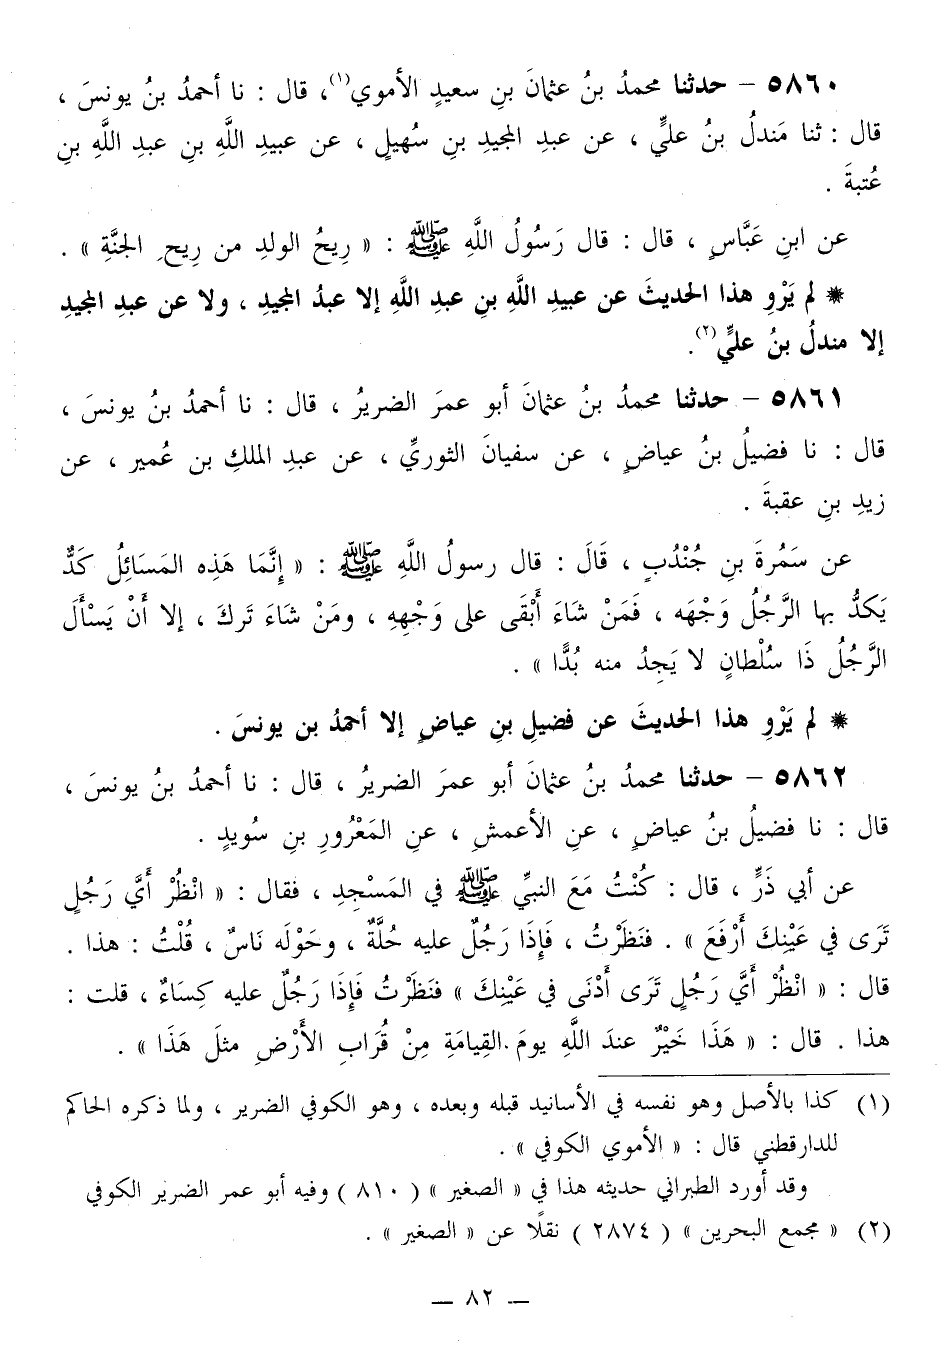 ٥٨٦٠ – حدثنا محمدُ بنُ عثمانَ بنِ سعيدٍ الأموي(١)، قال : نا أحمدُ بنُ يونسَ ،
قال : ثنا مَندلُ بنُ عليٍّ ، عن عبدِ المجيدِ بنِ سُهيلٍ ، عن عبيدِ اللَّهِ بنِ عبدِ اللَّهِ بنِ
عُتبةَ .
عن ابنِ عَبَّاسٍ ، قال : قال رَسُولُ اللَّهِ ﷺ : « رِيحُ الولدِ من رِيحِ الجنَّةِ » .
* لم يَرْوِ هذا الحديثَ عن عبيدِ اللَّهِ بنِ عبدِ اللَّهِ إلا عبدُ المجيدِ ، ولا عن عبدِ المجيدِ
إلا مندلُ بنُ عليٍّ(٢).
٥٨٦١ – حدثنا محمدُ بنُ عثمانَ أبو عمرَ الضريرُ ، قال : نا أحمدُ بنُ يونسَ ،
قال : نا فضيلُ بنُ عياضٍ ، عن سفيانَ الثوريِّ ، عن عبدِ الملكِ بن عُمير ، عن
زيدِ بنِ عقبةَ .
عن سَمُرةَ بنِ جُنْدُبٍ ، قَالَ : قال رسولُ اللَّهِ ﷺ : « إِنَّمَا هَذِه المَسَائِلُ كَدٌّ
يَكدُّ بها الرَّجُلُ وَجْهَه ، فَمَنْ شَاءَ أَبْقَى على وَجْهِهِ ، ومَنْ شَاءَ تَركَ ، إلا أَنْ يَسْأَلَ
الرَّجُلُ ذَا سُلْطانٍ لا يَجِدُ منه بُدًّا » .
* لم يَرْوِ هذا الحديثَ عن فضيلِ بنِ عياضٍ إلا أحمدُ بن يونسَ .
٥٨٦٢ – حدثنا محمدُ بنُ عثمانَ أبو عمرَ الضريرُ ، قال : نا أحمدُ بنُ يونسَ ،
قال : نا فضيلُ بنُ عياضٍ ، عنِ الأعمشِ ، عنِ المَعْرُورِ بنِ سُويدٍ .
عن أبي ذَرٍّ ، قال : كُنْتُ مَعَ النبيِّ ﷺ في المَسْجدِ ، فقال : « انْظُرْ أَيَّ رَجُلٍ
تَرَى في عَيْنِكَ أَرْفَعَ » . فنَظَرْتُ ، فَإِذَا رَجُلٌ عليه حُلَّةٌ ، وحَوْلَه نَاسٌ ، قُلْتُ : هذا .
قال : « انْظُرْ أَيَّ رَجُلٍ تَرَى أَدْنَى في عَيْنِكَ » فنَظَرْتُ فَإِذَا رَجُلٌ عليه كِسَاءٌ ، قلت :
هذا . قال : « هَذَا خَيْرٌ عندَ اللَّهِ يومَ القِيامَةِ مِنْ قُرَابِ الأَرْضِ مثلَ هَذَا » .
(١) كذا بالأصل وهو نفسه في الأسانيد قبله وبعده ، وهو الكوفي الضرير ، ولما ذكره الحاكم
للدارقطني قال : « الأموي الكوفي » .
وقد أورد الطبراني حديثه هذا في « الصغير » ( ٨١٠ ) وفيه أبو عمر الضرير الكوفي
(٢) « مجمع البحرين » ( ٢٨٧٤ ) نقلًا عن « الصغير » .
– ٨٢ –